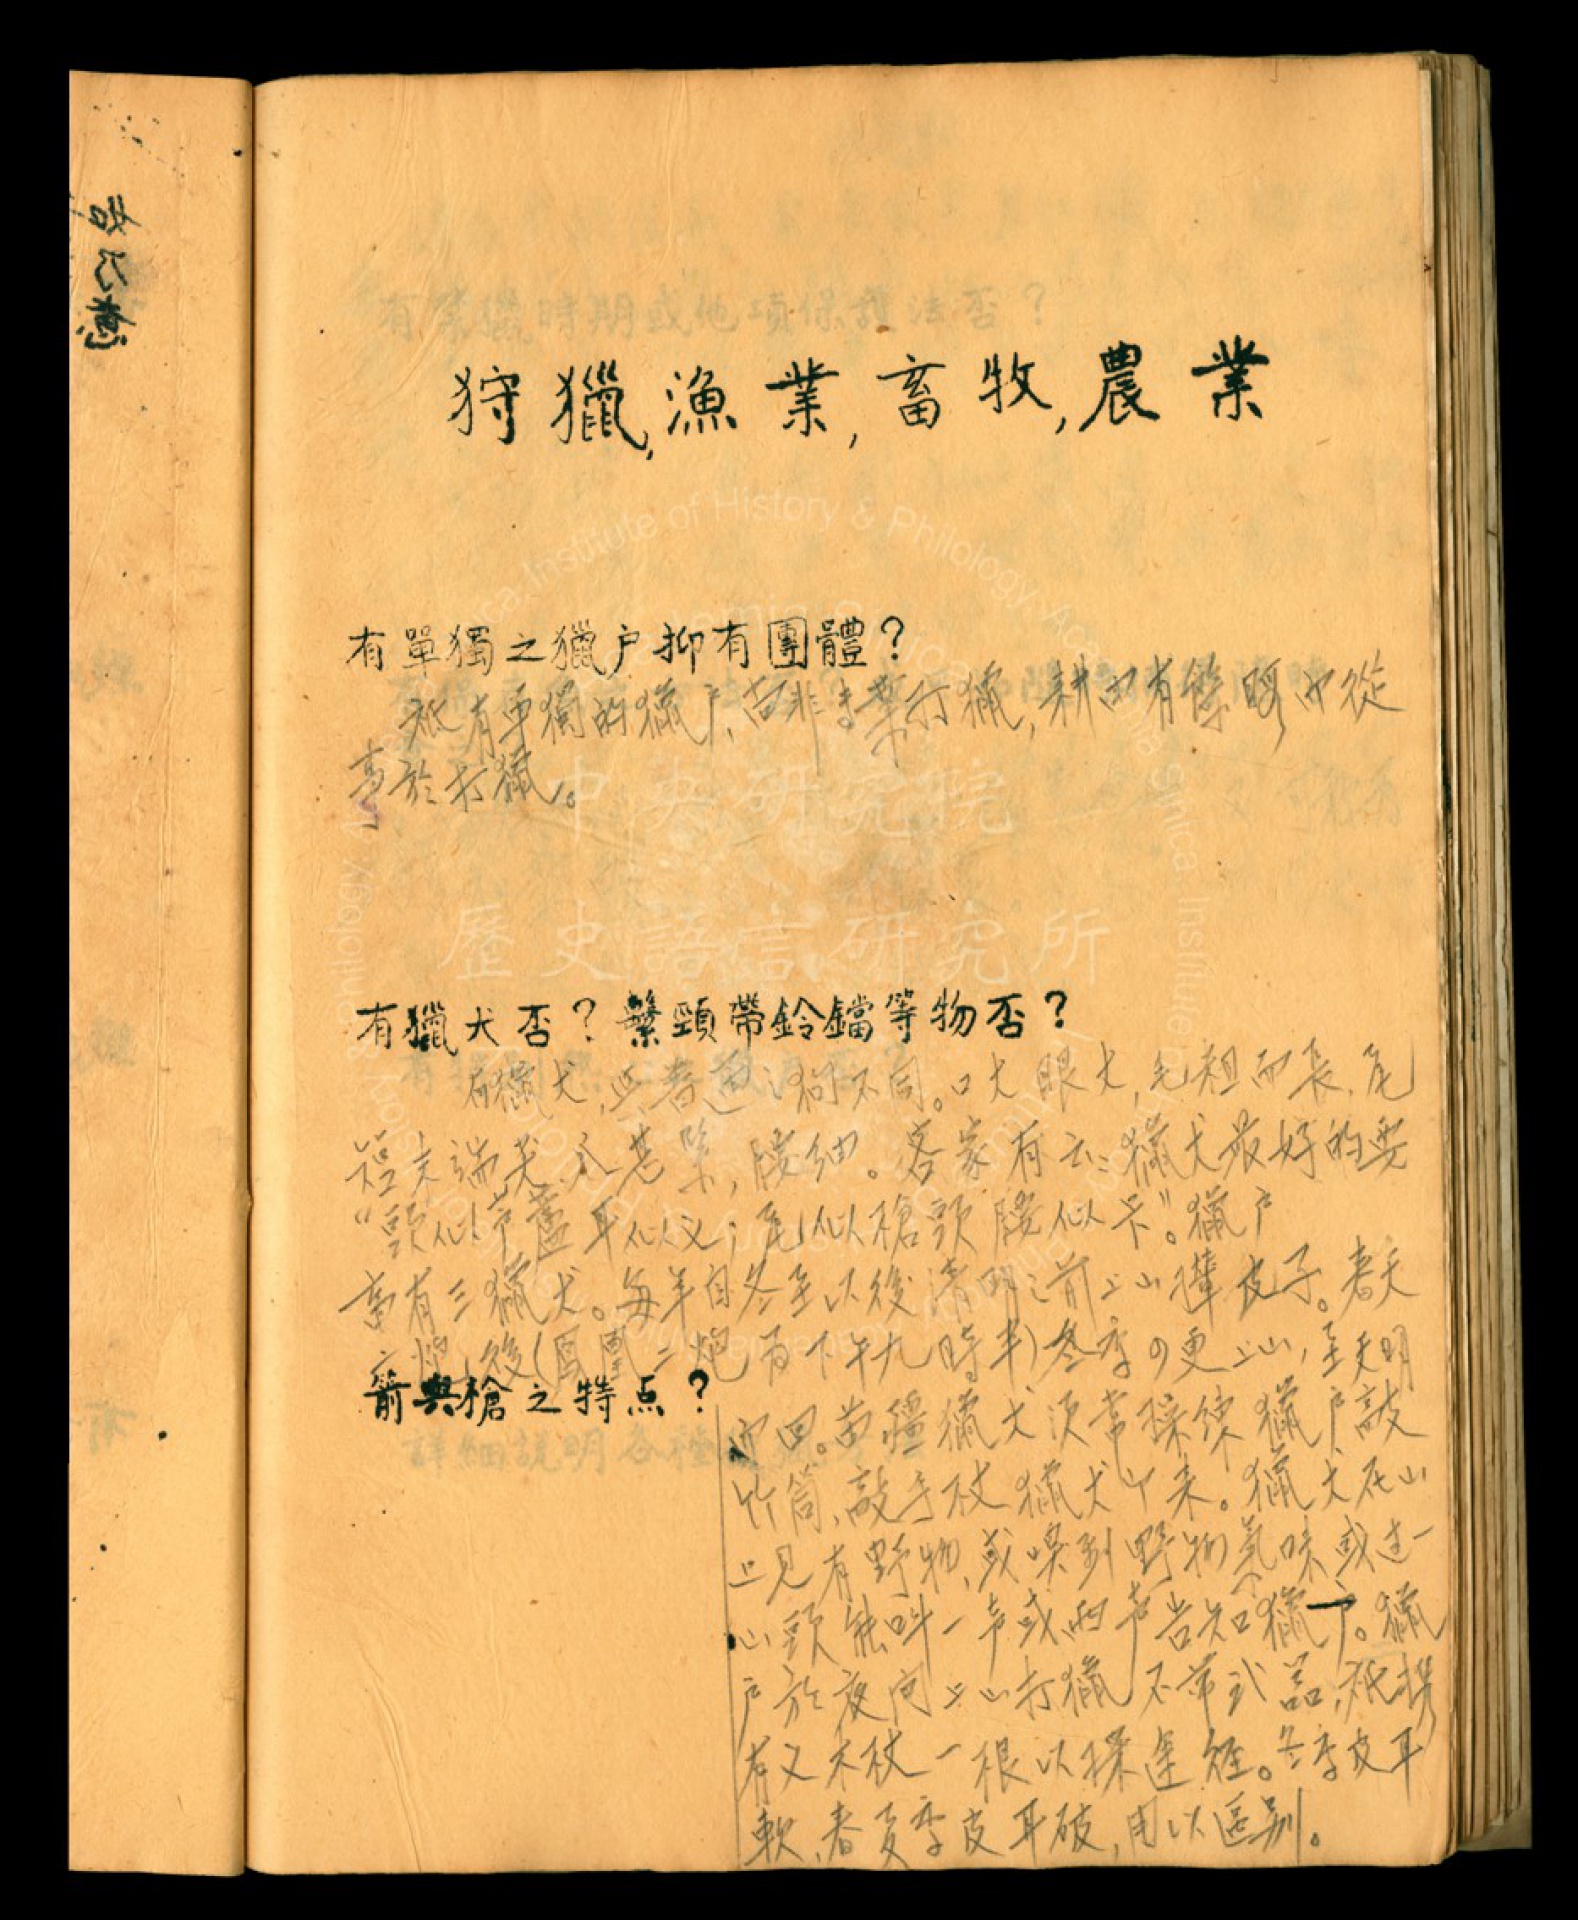 狩獵,漁業,畜牧,農業
有單獨之獵户抑有團體?
祇有單獨的獵户,苗非專業打獵,耕田有餘暇中從
事於打獵。
有獵犬否?繫頸帶鈴鐺等物否?
有獵犬,與普通之狗不同。口大眼大,毛粗而長,尾
短末端尖,腰細。客家有云:獵犬最好的要
“頭似芦蘆耳似义;尾似槍頭腰似”。獵户
畜有三獵犬。每年自冬至以後清明之前上山攆皮子。春天
二炮後(鳳凰二炮為下午九時半)冬季四更上山,至天明
箭與槍之特点?
而回。苗疆獵犬須常操練獵户敲
竹筒,敲手杖獵犬叫來。獵犬在山
上見有野物,或嗅到野物氣味或过一
山頭能叫一声或兩声告知獵户。獵
户於夜间上山打獵不帶武器,祇携
有义木杖一根以探途徑。冬季皮耳
軟,春夏季皮耳破,用以區别。
中央研究院
歷史語言研究所
Institute of History & Philology, Academia Sinica